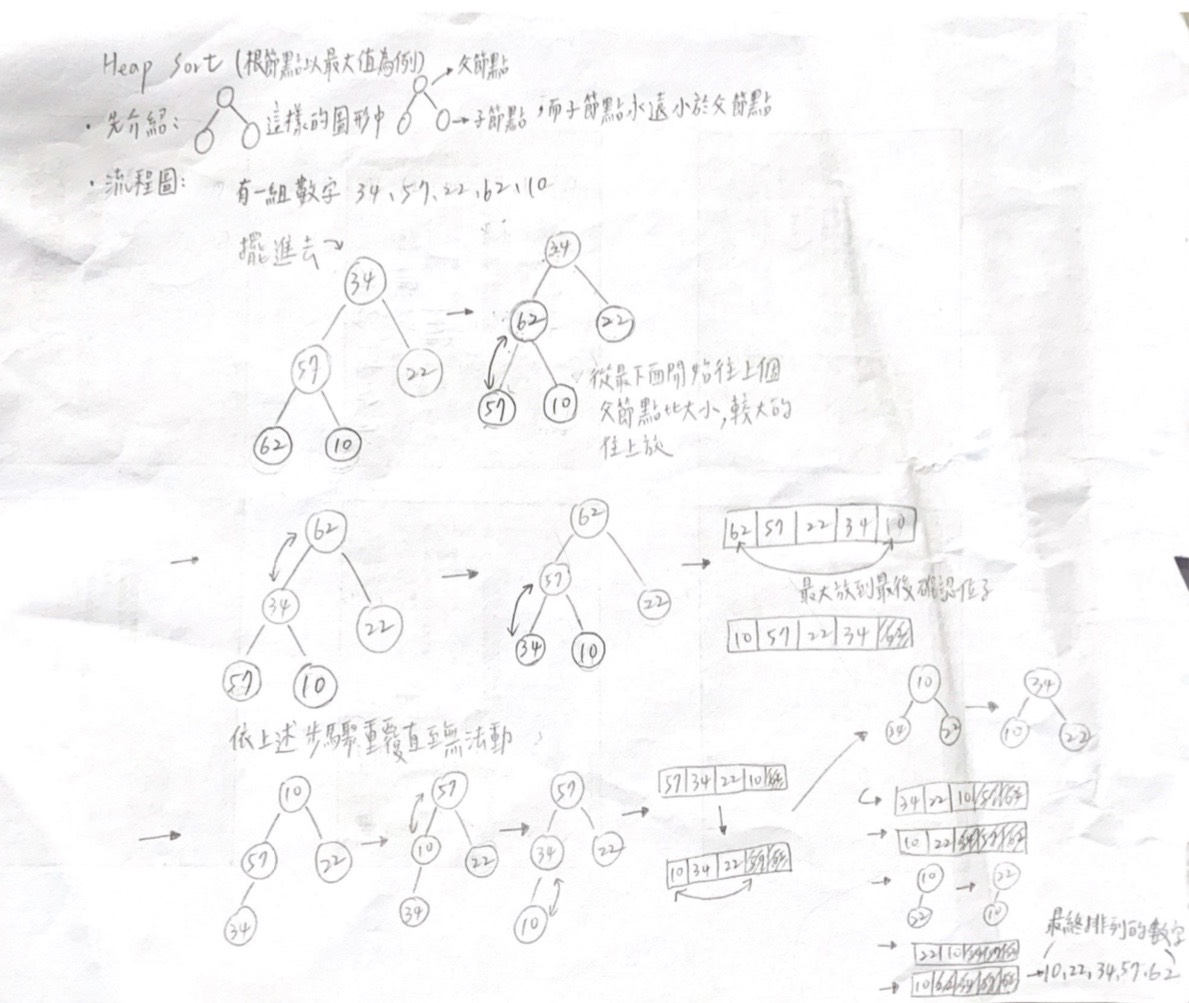 Heap Sort (根節點以最大值為例)
父節點
・先介紹: 這樣的圖形中 子節點,而子節點永遠小於父節點
・流程圖: 有一組數字 34、57、22、62、10
擺進去
34
57 22
62 10
34
62 22
57 10
從最下面開始往上個
父節點比大小,較大的
往上放
62
34 22
57 10
62
57 22
34 10
62 57 22 34 10
最大放到最後確認位子
10 57 22 34 62
依上述步驟重覆直至無法動
10
57 22
34
57
10 22
34
57
34 22
10
57 34 22 10 62
10 34 22 57 62
10
34 22
34
10 22
34 22 10 57 62
10 22 34 57 62
10
22
22
10
22 10 34 57 62
10 22 34 57 62
最終排列的數字
10、22、34、57、62